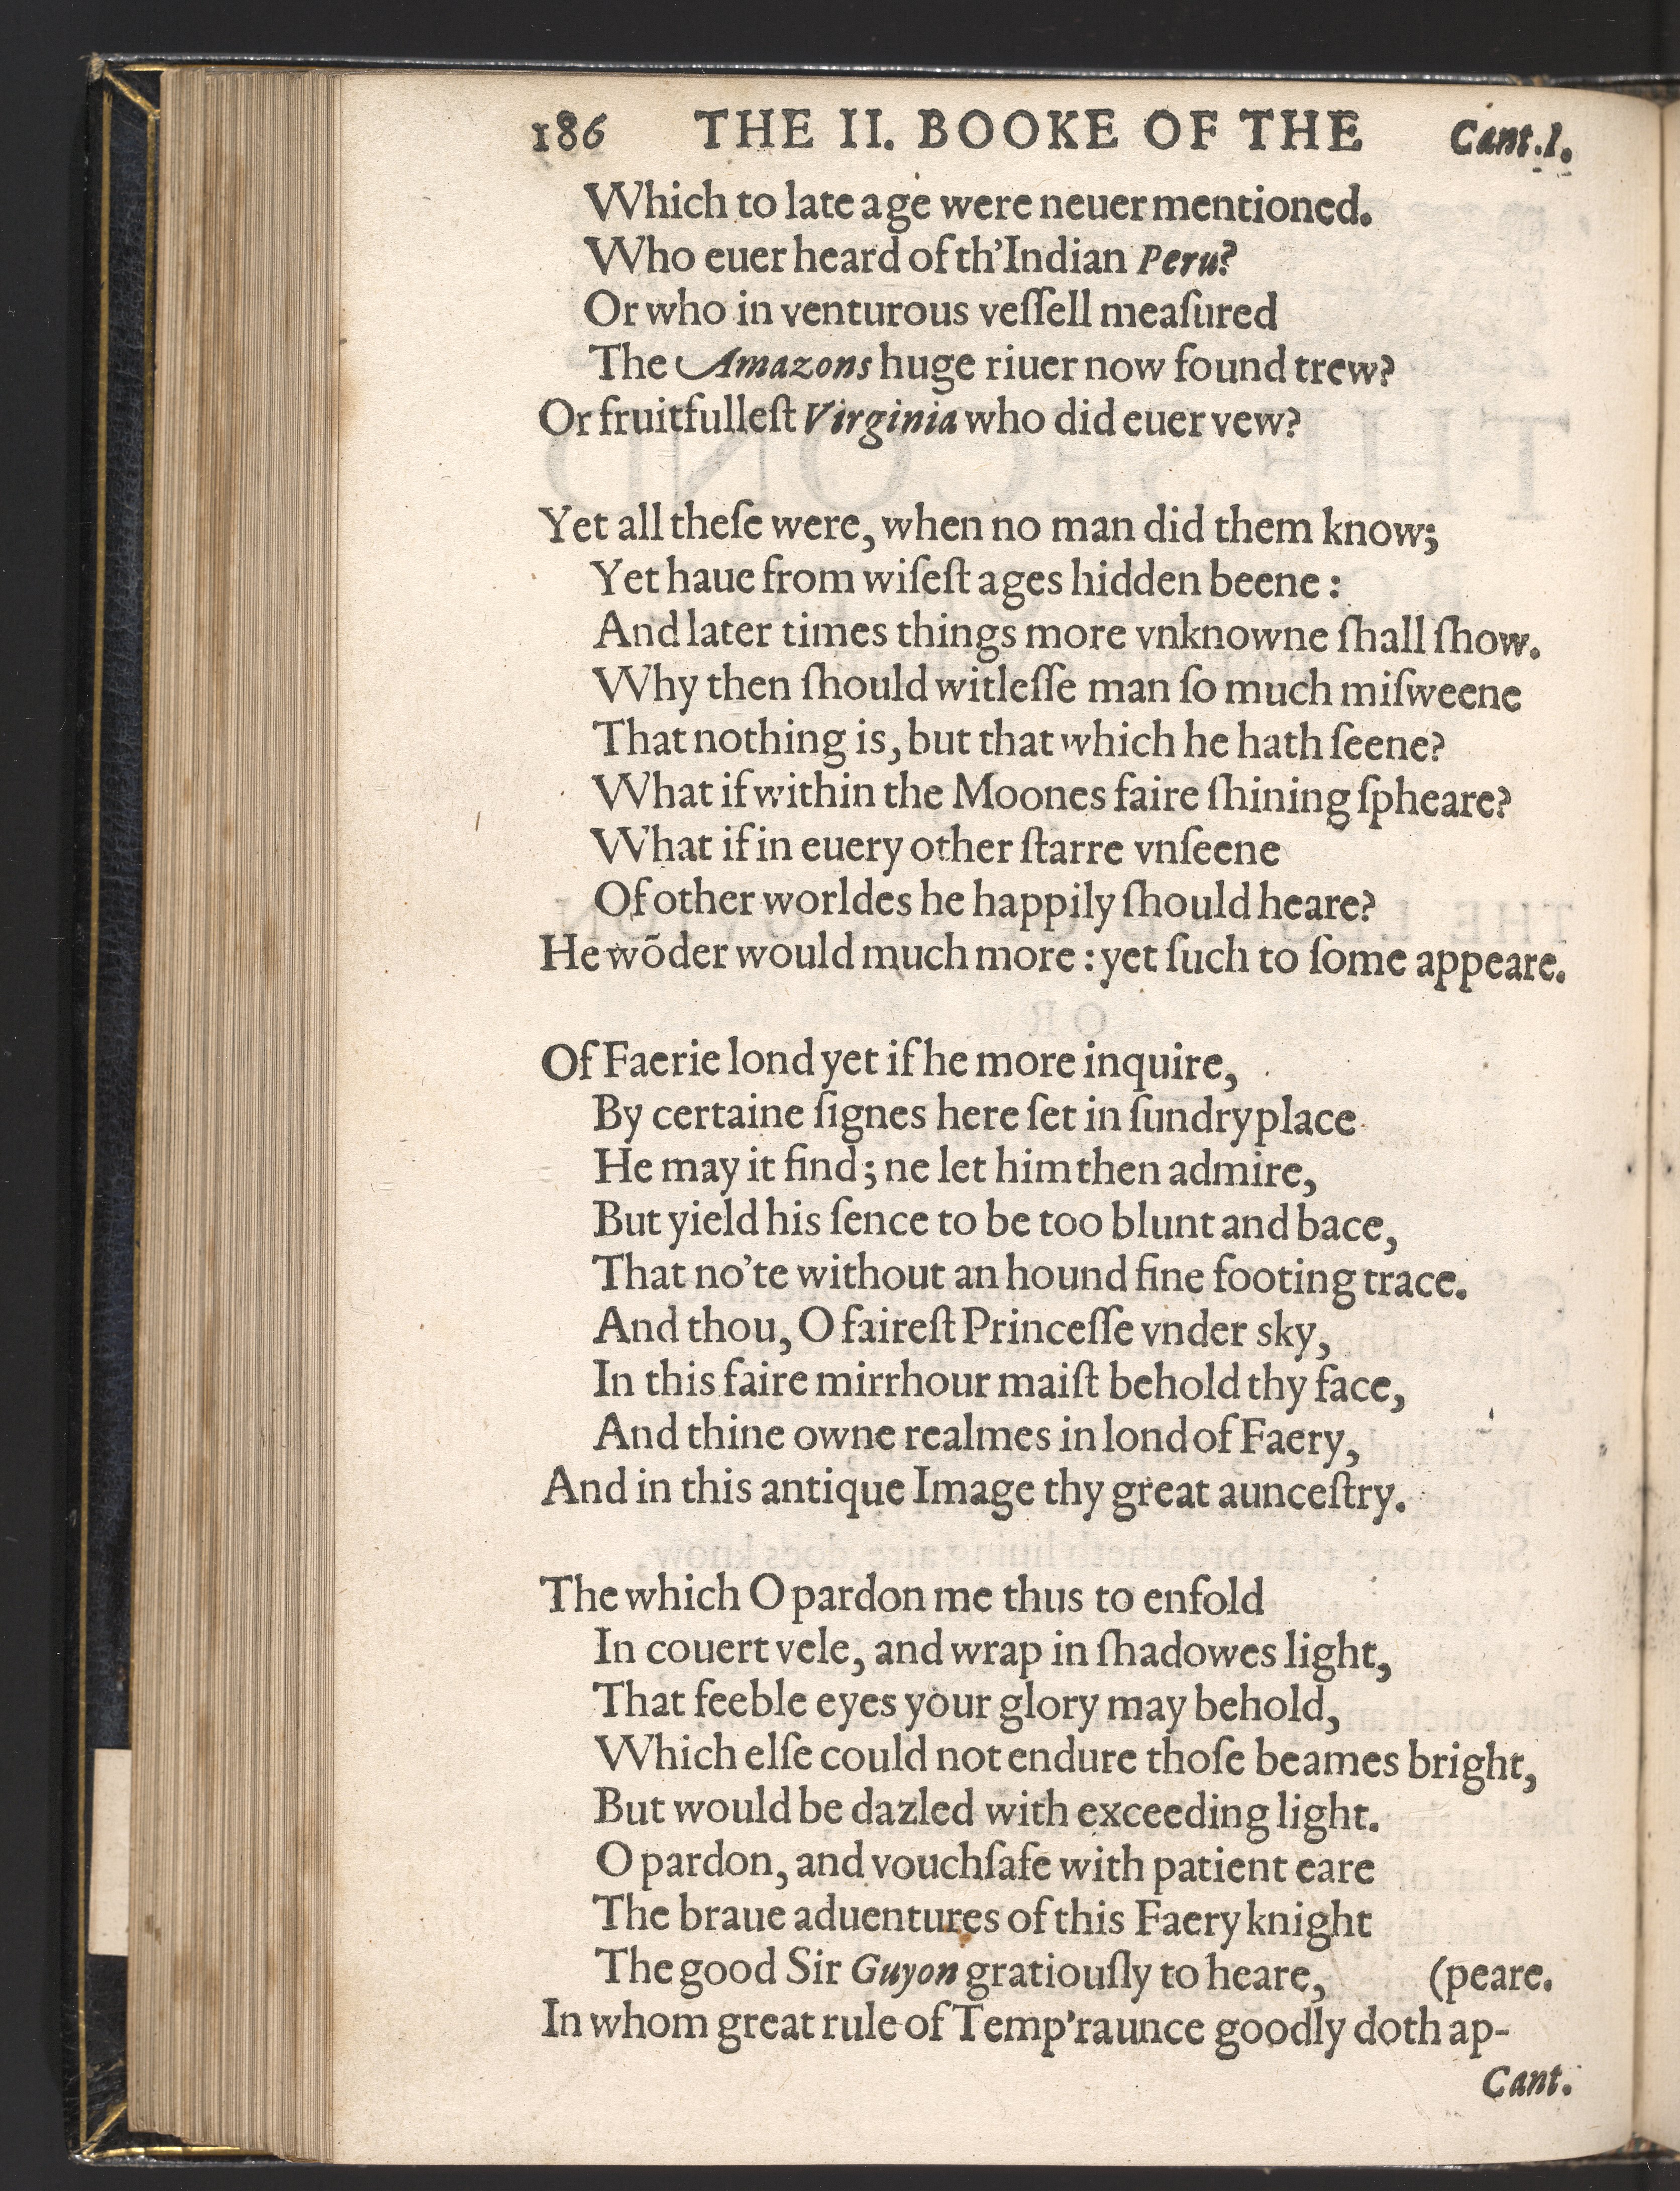 186 THE II. BOOKE OF THE Cant.I.
Which to late age were neuer mentioned.
Who euer heard of th'Indian Peru?
Or who in venturous veſſell meaſured
The Amazons huge riuer now found trew?
Or fruitfulleſt Virginia who did euer vew?
Yet all theſe were, when no man did them know;
Yet haue from wiſeſt ages hidden beene:
And later times things more vnknowne ſhall ſhow.
Why then ſhould witleſſe man ſo much miſweene
That nothing is, but that which he hath ſeene?
What if within the Moones faire ſhining ſpheare?
What if in euery other ſtarre vnſeene
Of other worldes he happily ſhould heare?
He wõder would much more: yet ſuch to ſome appeare.
Of Faerie lond yet if he more inquire,
By certaine ſignes here ſet in ſundry place
He may it find; ne let him then admire,
But yield his ſence to be too blunt and bace,
That no'te without an hound fine footing trace.
And thou, O faireſt Princeſſe vnder sky,
In this faire mirrhour maiſt behold thy face,
And thine owne realmes in lond of Faery,
And in this antique Image thy great aunceſtry.
The which O pardon me thus to enfold
In couert vele, and wrap in ſhadowes light,
That feeble eyes your glory may behold,
Which elſe could not endure thoſe beames bright,
But would be dazled with exceeding light.
O pardon, and vouchſafe with patient eare
The braue aduentures of this Faery knight
The good Sir Guyon gratiouſly to heare, (peare.
In whom great rule of Temp'raunce goodly doth ap-
Cant.